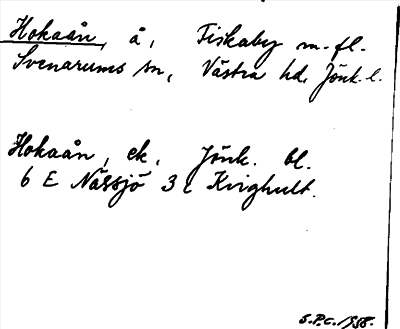 Hokaån, å, Fiskaby m.fl.
Svenarums sn, Västra hd, Jönk. l.
Hokaån, ek, Jönk. bl.
6 E Nässjö 3 c Kvighult.
S.P.C. 1958.